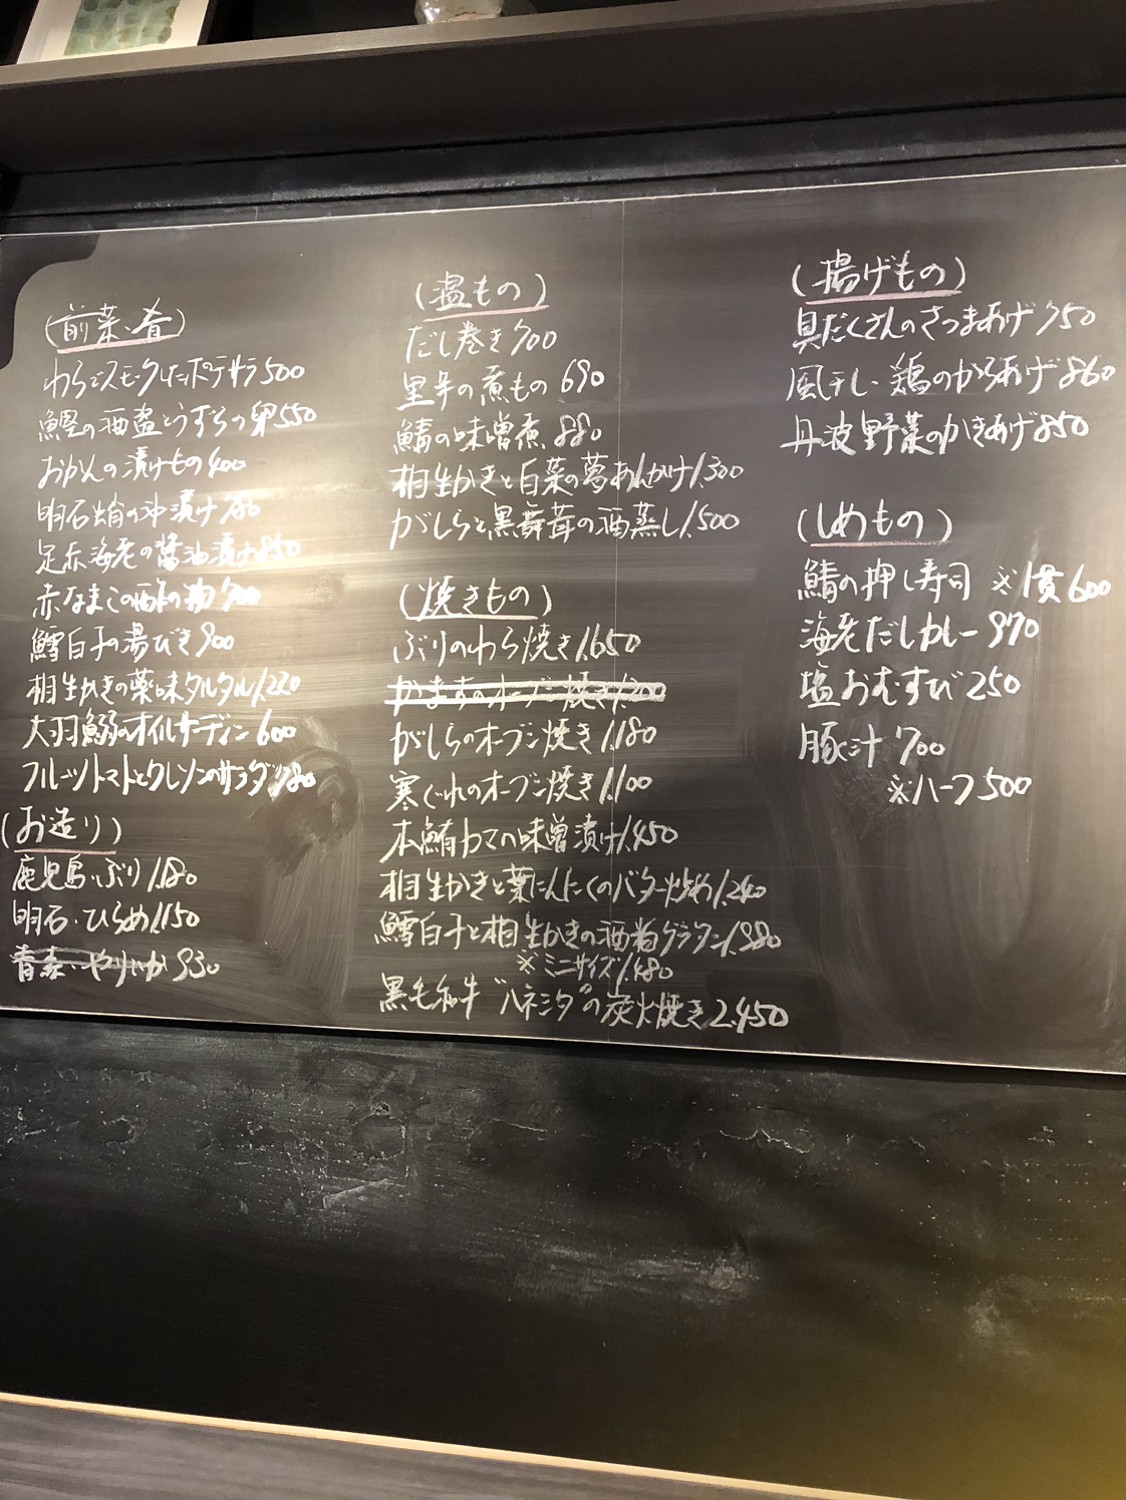 (前菜・肴)
わらでスモークしたポテサラ500
鰹の酒盗とうずらの卵550
おかんの漬けもの400
明石蛸の沖漬け780
足赤海老の醤油漬け850
赤なまこの酢の物700
鱈白子の湯びき900
相生かきの薬味タルタル1.220
大羽鰯のオイルサーディン600
フルーツトマトとクレソンのサラダ1.180
(お造り)
鹿児島・ぶり1.180
明石・ひらめ1.150
青森・やりいか930
(温もの)
だし巻き700
里芋の煮もの690
鯖の味噌煮880
相生かきと白菜の夢あんかけ1.300
がしらと黒舞茸の酒蒸し1.500
(焼きもの)
ぶりのわら焼き1.650
かますのオーブン焼き1.200
がしらのオーブン焼き1.180
寒ぐれのオーブン焼き1.100
本鮪カマの味噌漬け1.450
相生かきと葉にんにくのバター炒め1.240
鱈白子と相生かきの酒粕グラタン1.980
※ミニサイズ1.480
黒毛和牛"ハネシタ"の炭火焼き2.450
(揚げもの)
具だくさんのさつまあげ750
風干し・鶏のからあげ860
丹波野菜のかきあげ850
(しめもの)
鯖の押し寿司 ※1貫600
海老だしカレー970
塩おむすび250
豚汁700
※ハーフ500